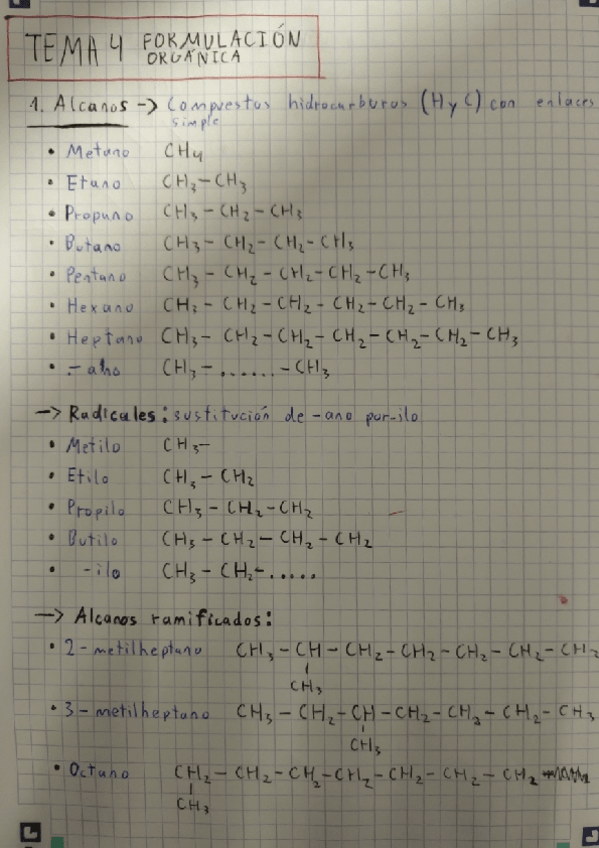 TEMA 4 FORMULACIÓN
ORGÁNICA
1. Alcanos -> Compuestos hidrocarburos (H y C) con enlaces
simple
• Metano CH4
• Etano CH3-CH3
• Propano CH3-CH2-CH3
• Butano CH3-CH2-CH2-CH3
• Pentano CH3-CH2-CH2-CH2-CH3
• Hexano CH3-CH2-CH2-CH2-CH2-CH3
• Heptano CH3-CH2-CH2-CH2-CH2-CH2-CH3
• -ano CH3-......-CH3
-> Radicales: sustitución de -ano por -ilo
• Metilo CH3-
• Etilo CH3-CH2
• Propilo CH3-CH2-CH2
• Butilo CH3-CH2-CH2-CH2
• -ilo CH3-CH2-.....
-> Alcanos ramificados:
• 2-metilheptano CH3-CH-CH2-CH2-CH2-CH2-CH2
CH3
• 3-metilheptano CH3-CH2-CH-CH2-CH2-CH2-CH3
CH3
• Octano CH2-CH2-CH2-CH2-CH2-CH2-CH2
CH3